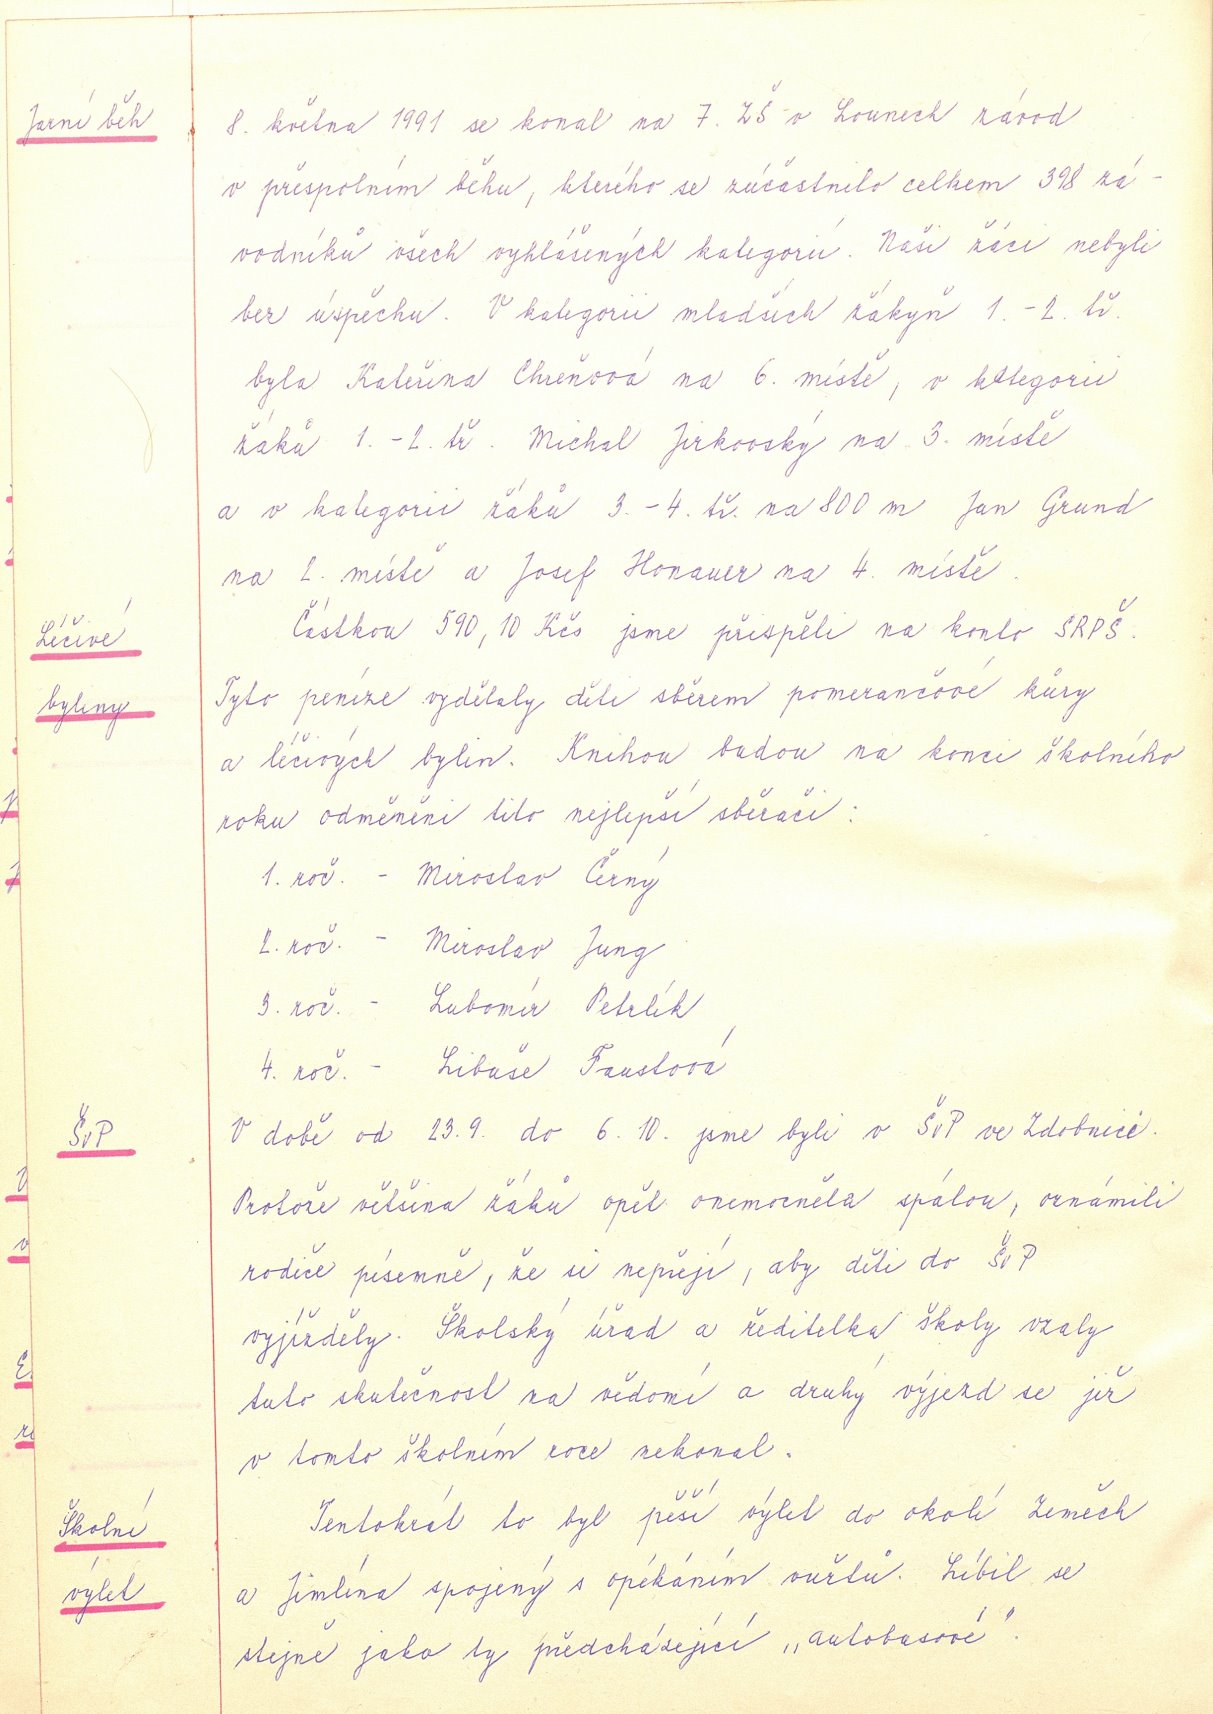 Jarní běh
8. května 1991 se konal na 7. ZŠ v Lounech závod
v přespolním běhu, kterého se zúčastnilo celkem 398 zá-
vodníků všech vyhlášených kategorií. Naši žáci nebyli
bez úspěchu. V kategorii mladších žákyň 1. - 2. tř.
byla Kateřina Chreňová na 6. místě, v kategorii
žáků 1. - 2. tř. Michal Jirkovský na 3. místě
a v kategorii žáků 3. - 4. tř. na 800 m Jan Grund
na 2. místě a Josef Honauer na 4. místě.
Léčivé
Částkou 590,10 Kčs jsme přispěli na konto SRPŠ.
byliny
Tyto peníze vydělaly děti sběrem pomerančové kůry
a léčivých bylin. Knihou budou na konci školního
roku odměněni tito nejlepší sběrači:
1. roč. - Miroslav Černý
2. roč. - Miroslav Jung
3. roč. - Lubomír Petrlík
4. roč. - Libuše Faustová
ŠvP
V době od 23.9. do 6.10. jsme byli v ŠvP ve Zdobnici.
Protože většina žáků opět onemocněla spálou, oznámili
rodiče písemně, že si nepřejí, aby děti do ŠvP
vyjížděly. Školský úřad a ředitelka školy vzaly
tuto skutečnost na vědomí a druhý výjezd se již
v tomto školním roce nekonal.
Školní
Tentokrát to byl pěší výlet do okolí Zeměch
výlet
a Jimlína spojený s opékáním vuřtů. Líbil se
stejně jako ty předcházející „autobusové".